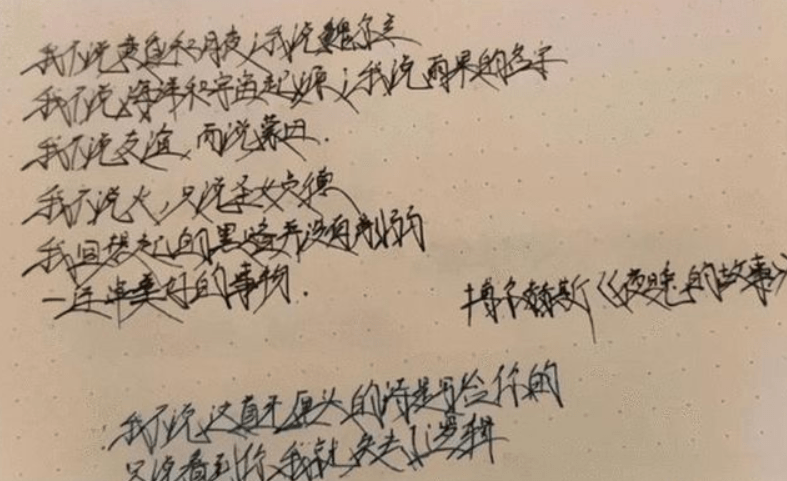 我不说黄昏和月夜；我说魏尔兰
我不说海洋和宇宙起源；我说雨果的名字
我不说友谊，而说蒙田．
我不说火，只说圣女贞德
我回想起的黑暗并没有削弱
一连串美好的事物．
博尔赫斯《夜晚的故事》
我不说这首无厘头的诗是写给你的
只说看到你，我就失去了逻辑